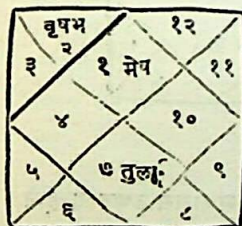 वृषभ १२
२
३ १ मेष ११
४ १०
५ ७ तुला ९
६ ८